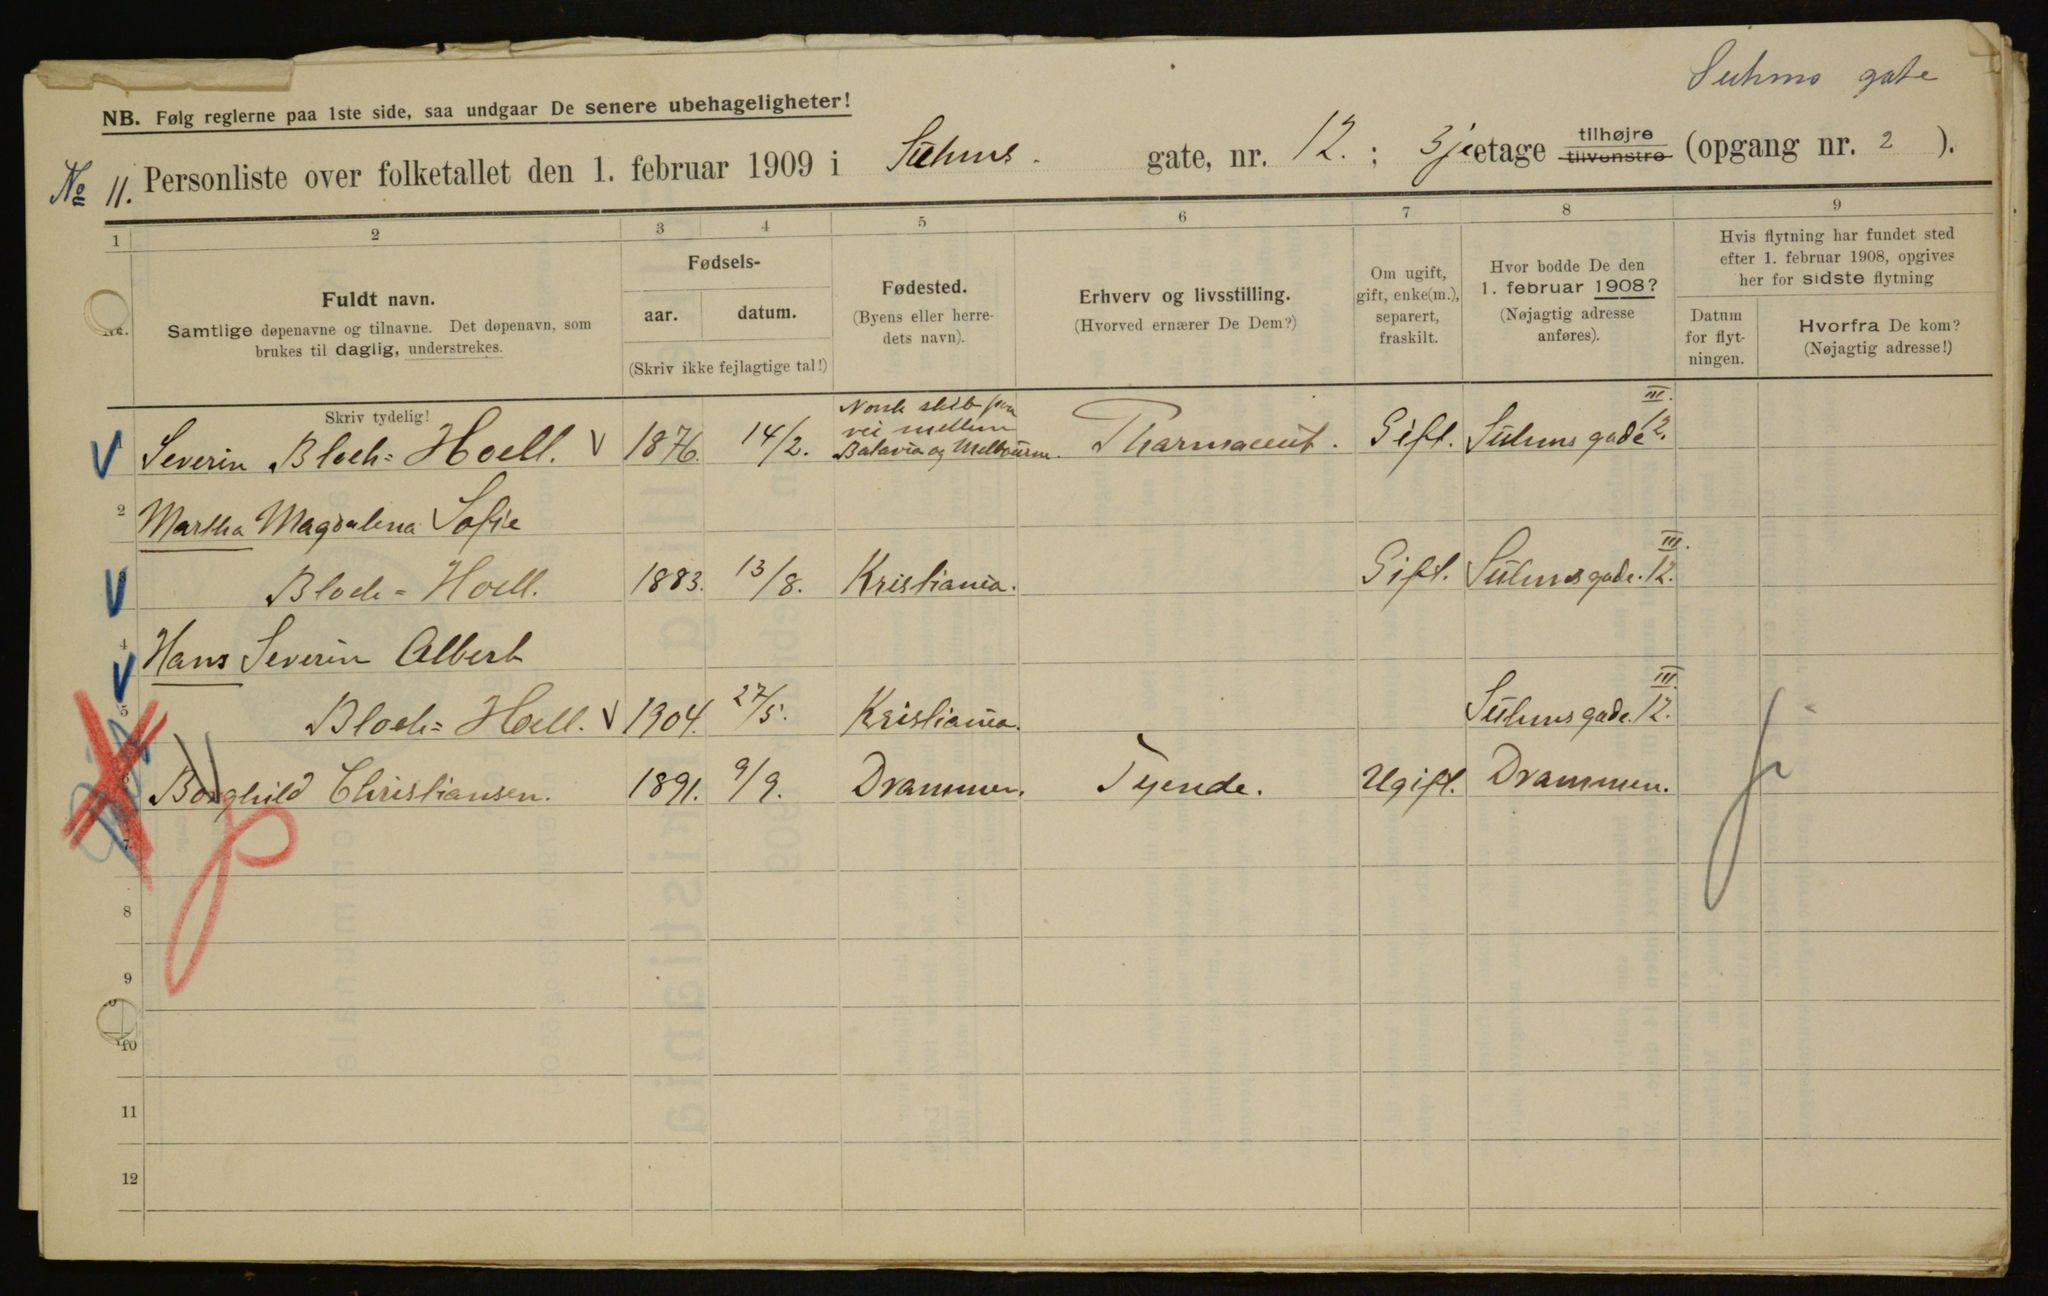 Suhms gate
NB. Følg reglerne paa 1ste side, saa undgaar De senere ubehageligheter!
No 11. Personliste over folketallet den 1. februar 1909 i Suhms. gate, nr. 12. ; 3je etage tilhøjre tilvenstre (opgang nr. 2 ).
1 2 3 4 5 6 7 8 9
Nr.
Fuldt navn.
Samtlige døpenavne og tilnavne. Det døpenavn, som
brukes til daglig, understrekes.
Skriv tydelig!
Fødsels-
aar. datum.
(Skriv ikke fejlagtige tal!)
Fødested.
(Byens eller herre-
dets navn).
Erhverv og livsstilling.
(Hvorved ernærer De Dem?)
Om ugift,
gift, enke(m.),
separert,
fraskilt.
Hvor bodde De den
1. februar 1908?
(Nøjagtig adresse
anføres).
Hvis flytning har fundet sted
efter 1. februar 1908, opgives
her for sidste flytning
Datum
for flyt-
ningen.
Hvorfra De kom?
(Nøjagtig adresse!)
Severin Bloch=Hoell. 1876. 14/2. Norsk skib paa
vei mellem
Batavia og Melbourne. Pharmaceut. Gift. Suhms gade 12. III.
2 Martha Magdalena Sofie
Bloch=Hoell. 1883. 13/8. Kristiania. Gift. Suhmsgade. 12. III.
4 Hans Severin Albert
5 Bloch=Hoell. 1904. 27/5. Kristiania. Suhmsgade. 12. III.
Borghild Christiansen. 1891. 9/9. Drammen. Tjende. Ugift. Drammen.
7
8
9
10
11
12